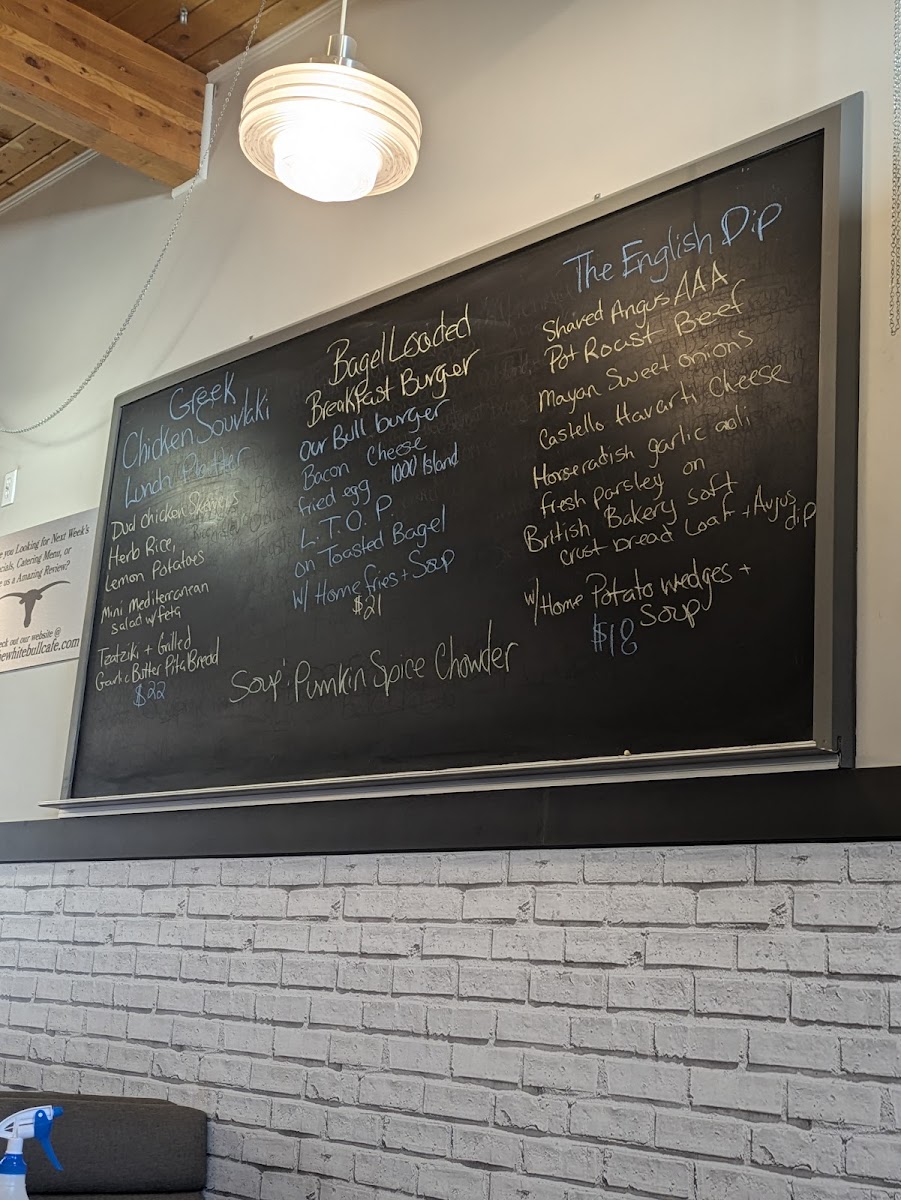 Greek
Chicken Souvlaki
Lunch Platter
Duo chicken Skewers
Herb Rice,
Lemon Potatoes
Mini Mediterranean
salad w/feta
Tzatziki + Grilled
Garlic Butter Pita Bread
$22
Bagel Loaded
Breakfast Burger
Our Bull burger
Bacon Cheese
fried egg 1000 Island
L.T.O.P.
on Toasted Bagel
w/ Home fries + Soup
$21
The English Dip
Shaved Angus AAA
Pot Roast Beef
Mayan Sweet onions
Castello Havarti Cheese
Horseradish garlic aoli
fresh parsley on
British Bakery soft
crust bread Loaf + Aujus
dip
w/Home Potato wedges +
Soup
$18
Soup: Pumkin Spice Chowder
you Looking for Next Week's
cials, Catering Menu, or
e us a Amazing Review?
eck out our website @
ewhitebullcafe.com